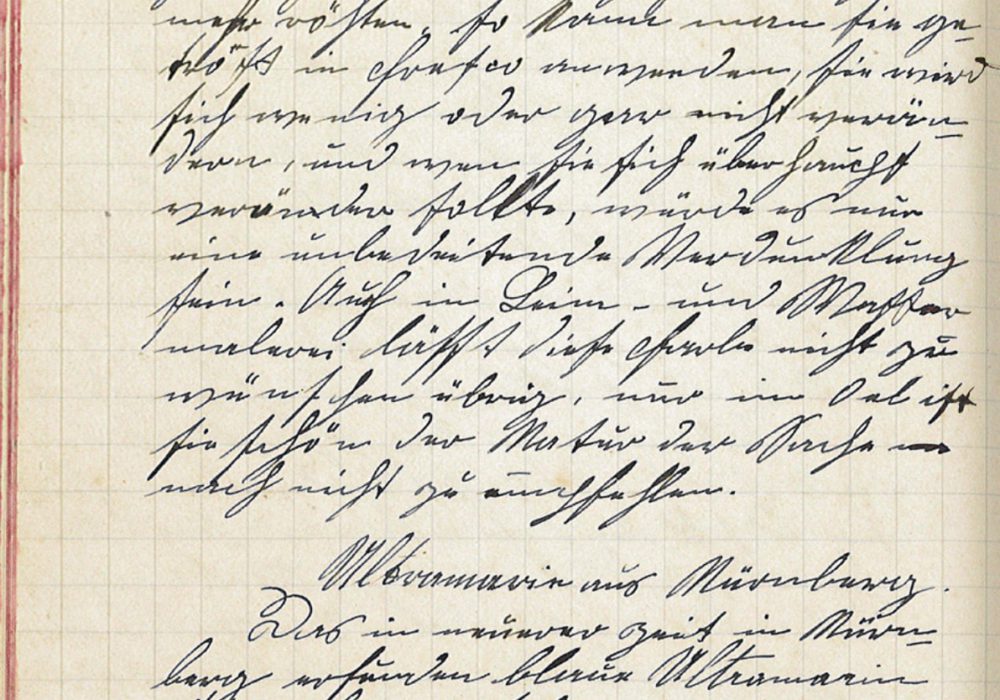 mehr röhten, so kann man sie ge-
trost in Fresco anwenden, sie wird
sich wenig oder gar nicht verän-
dern, und wen sie sich überhaucht
verändern sollte, würde es nur
eine unbedeitende Verdunklung
sein. Auch in Leim- und Wasser
malerei lässt diese Farbe nicht zu
wünschen übrig, nur im Oel ist
sie schon der Natur der Sache
nach nicht zu empfehlen.
Ultramarin aus Nürnberg.
Das in neuerer Zeit in Nürn-
berg erfunden blaue Ultramarin